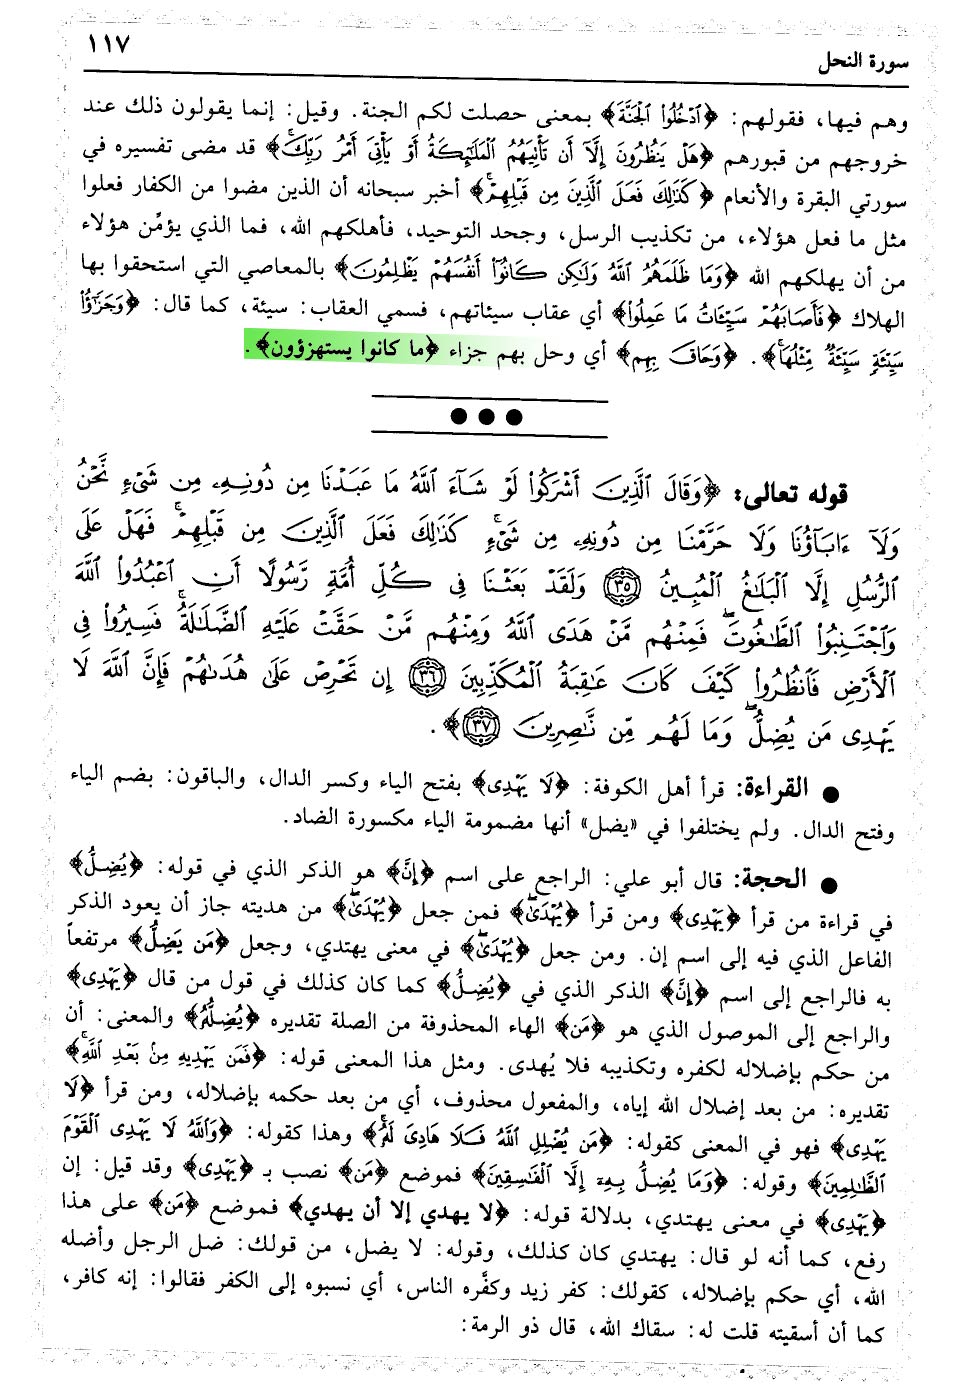 سورة النحل
١١٧
وهم فيها، فقولهم: ﴿ٱدۡخُلُوا۟ ٱلۡجَنَّةَ﴾ بمعنى حصلت لكم الجنة. وقيل: إنما يقولون ذلك عند
خروجهم من قبورهم ﴿هَلۡ يَنظُرُونَ إِلَّآ أَن تَأۡتِيَهُمُ ٱلۡمَلَٰٓئِكَةُ أَوۡ يَأۡتِىَ أَمۡرُ رَبِّكَۚ﴾ قد مضى تفسيره في
سورتي البقرة والأنعام ﴿كَذَٰلِكَ فَعَلَ ٱلَّذِينَ مِن قَبۡلِهِمۡۚ﴾ أخبر سبحانه أن الذين مضوا من الكفار فعلوا
مثل ما فعل هؤلاء، من تكذيب الرسل، وجحد التوحيد، فأهلكهم الله، فما الذي يؤمِّن هؤلاء
من أن يهلكهم الله ﴿وَمَا ظَلَمَهُمُ ٱللَّهُ وَلَٰكِن كَانُوٓا۟ أَنفُسَهُمۡ يَظۡلِمُونَ﴾ بالمعاصي التي استحقوا بها
الهلاك ﴿فَأَصَابَهُمۡ سَيِّـَٔاتُ مَا عَمِلُوا۟﴾ أي عقاب سيئاتهم، فسمي العقاب: سيئة، كما قال: ﴿وَجَزَٰٓؤُا۟
سَيِّئَةٖ سَيِّئَةٞ مِّثۡلُهَاۖ﴾. ﴿وَحَاقَ بِهِم﴾ أي وحل بهم جزاء ﴿ما كانوا يستهزؤون﴾.
● ● ●
قوله تعالى: ﴿وَقَالَ ٱلَّذِينَ أَشۡرَكُوا۟ لَوۡ شَآءَ ٱللَّهُ مَا عَبَدۡنَا مِن دُونِهِۦ مِن شَىۡءٖ نَّحۡنُ
وَلَآ ءَابَآؤُنَا وَلَا حَرَّمۡنَا مِن دُونِهِۦ مِن شَىۡءٖۚ كَذَٰلِكَ فَعَلَ ٱلَّذِينَ مِن قَبۡلِهِمۡۚ فَهَلۡ عَلَى
ٱلرُّسُلِ إِلَّا ٱلۡبَلَٰغُ ٱلۡمُبِينُ ٣٥ وَلَقَدۡ بَعَثۡنَا فِى كُلِّ أُمَّةٖ رَّسُولًا أَنِ ٱعۡبُدُوا۟ ٱللَّهَ
وَٱجۡتَنِبُوا۟ ٱلطَّٰغُوتَۖ فَمِنۡهُم مَّنۡ هَدَى ٱللَّهُ وَمِنۡهُم مَّنۡ حَقَّتۡ عَلَيۡهِ ٱلضَّلَٰلَةُۚ فَسِيرُوا۟ فِى
ٱلۡأَرۡضِ فَٱنظُرُوا۟ كَيۡفَ كَانَ عَٰقِبَةُ ٱلۡمُكَذِّبِينَ ٣٦ إِن تَحۡرِصۡ عَلَىٰ هُدَىٰهُمۡ فَإِنَّ ٱللَّهَ لَا
يَهۡدِى مَن يُضِلُّۖ وَمَا لَهُم مِّن نَّٰصِرِينَ ٣٧﴾.
● القراءة: قرأ أهل الكوفة: ﴿لَا يَهۡدِى﴾ بفتح الياء وكسر الدال، والباقون: بضم الياء
وفتح الدال. ولم يختلفوا في «يضل» أنها مضمومة الياء مكسورة الضاد.
● الحجة: قال أبو علي: الراجع على اسم ﴿إِنَّ﴾ هو الذكر الذي في قوله: ﴿يُضِلُّ﴾
في قراءة من قرأ ﴿يَهۡدِى﴾ ومن قرأ ﴿يُهۡدَىٰۖ﴾ فمن جعل ﴿يُهۡدَىٰۖ﴾ من هديته جاز أن يعود الذكر
الفاعل الذي فيه إلى اسم إن. ومن جعل ﴿يُهۡدَىٰۖ﴾ في معنى يهتدي، وجعل ﴿مَن يَضِلُّ﴾ مرتفعاً
به فالراجع إلى اسم ﴿إِنَّ﴾ الذكر الذي في ﴿يُضِلُّ﴾ كما كان كذلك في قول من قال ﴿يَهۡدِى﴾
والراجع إلى الموصول الذي هو ﴿مَن﴾ الهاء المحذوفة من الصلة تقديره ﴿يُضِلُّهُ﴾ والمعنى: أن
من حكم بإضلاله لكفره وتكذيبه فلا يُهدى. ومثل هذا المعنى قوله: ﴿فَمَن يَهۡدِيهِ مِنۢ بَعۡدِ ٱللَّهِۚ﴾
تقديره: من بعد إضلال الله إياه، والمفعول محذوف، أي من بعد حكمه بإضلاله، ومن قرأ ﴿لَا
يَهۡدِى﴾ فهو في المعنى كقوله: ﴿مَن يُضۡلِلِ ٱللَّهُ فَلَا هَادِىَ لَهُۥۚ﴾ وهذا كقوله: ﴿وَٱللَّهُ لَا يَهۡدِى ٱلۡقَوۡمَ
ٱلظَّٰلِمِينَ﴾ وقوله: ﴿وَمَا يُضِلُّ بِهِۦٓ إِلَّا ٱلۡفَٰسِقِينَ﴾ فموضع ﴿مَن﴾ نصب بـ ﴿يَهۡدِى﴾ وقد قيل: إن
﴿يَهۡدِى﴾ في معنى يهتدي، بدلالة قوله: ﴿لا يهدي إلا أن يهدي﴾ فموضع ﴿مَن﴾ على هذا
رفع، كما أنه لو قال: يهتدي كان كذلك، وقوله: لا يضل، من قولك: ضل الرجل وأضله
الله، أي حكم بإضلاله، كقولك: كفر زيد وكفَّره الناس، أي نسبوه إلى الكفر فقالوا: إنه كافر،
كما أن أسقيته قلت له: سقاك الله، قال ذو الرمة: